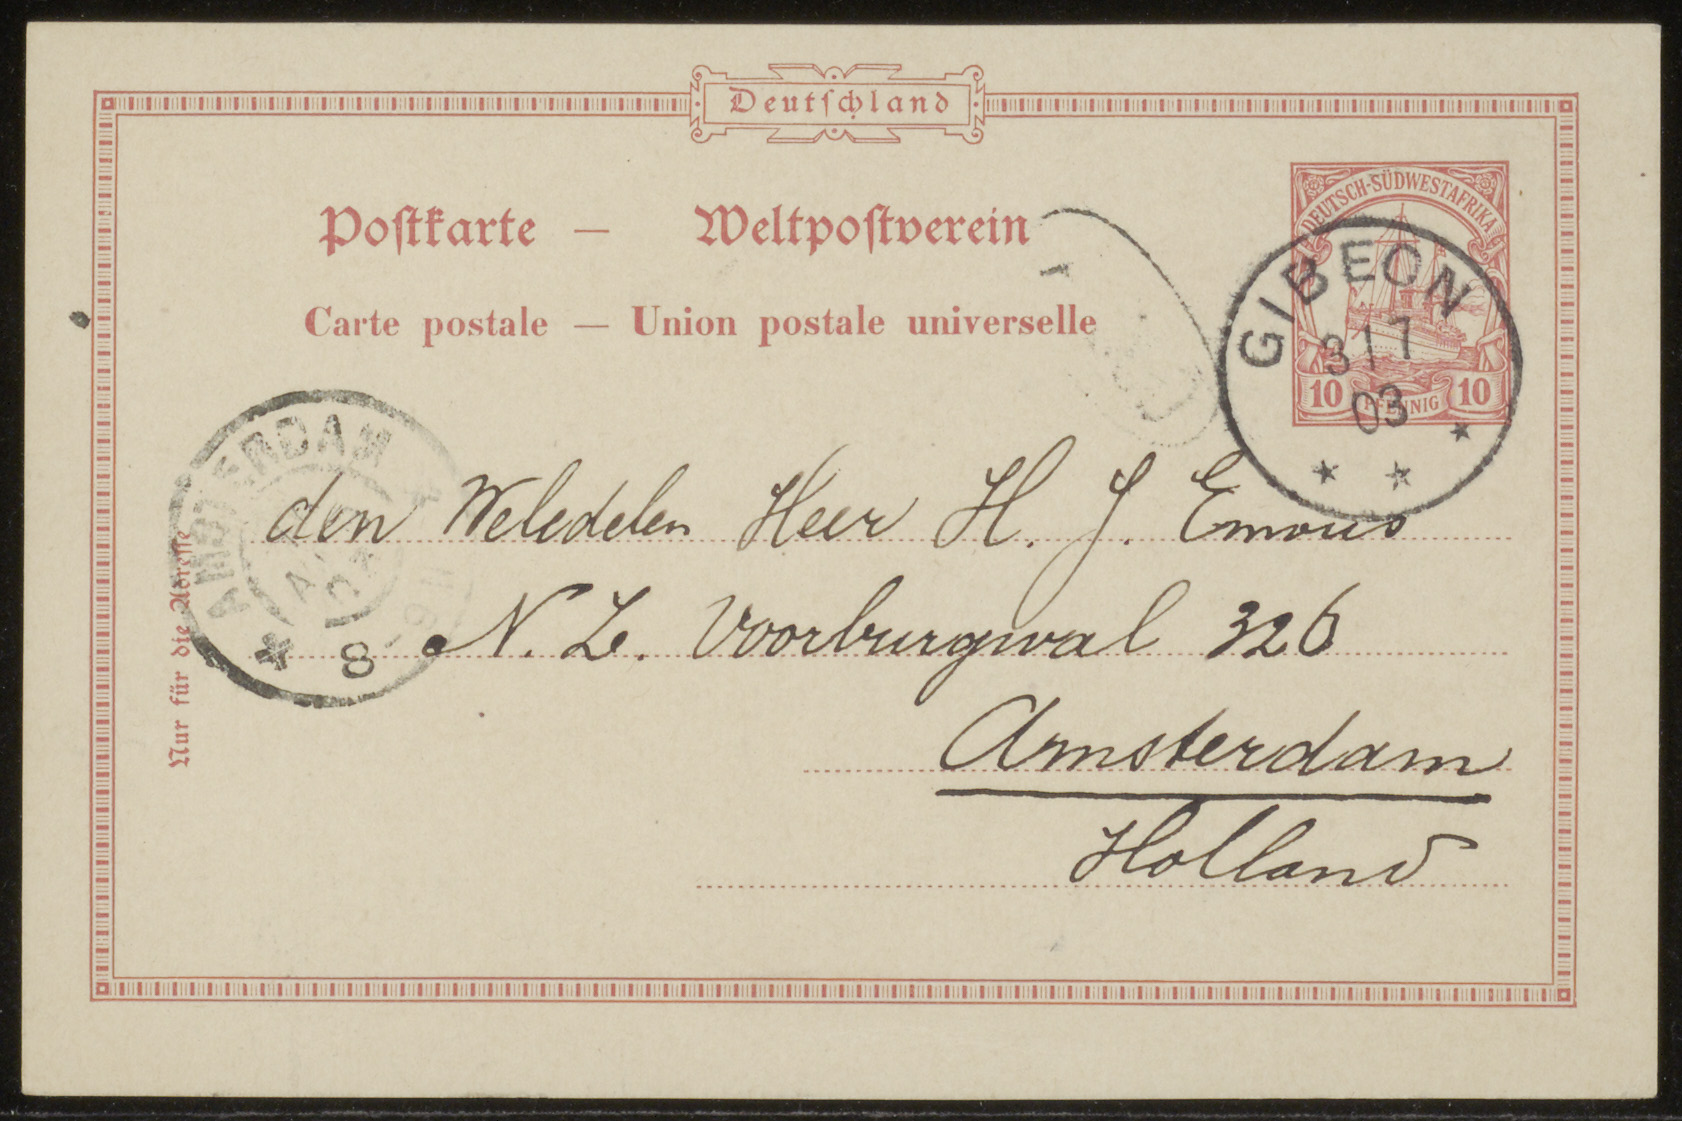 Deutschland
Postkarte — Weltpostverein
Carte postale — Union postale universelle
DEUTSCH-SÜDWESTAFRIKA
10 PFENNIG 10
GIBEON
31 7
03
AMSTERDAM
8
Nur für die Adresse
den Weledelen Heer H. J. Emous
N. Z. Voorburgwal 326
Amsterdam
Holland